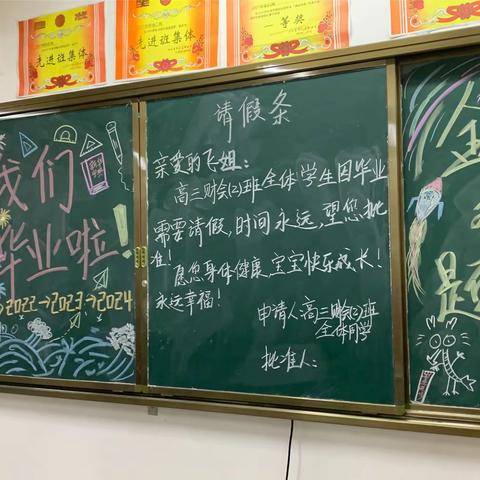 先进班集体
先进班集体
等奖
我们
毕业啦!
2022→2023→2024
请假条
亲爱的飞姐:
高三财会(2)班全体学生因毕业
需要请假,时间永远,望您批
准!
愿您身体健康,宝宝快乐成长!
永远幸福!
申请人:高三财会(2)班
全体同学
批准人:
金
题